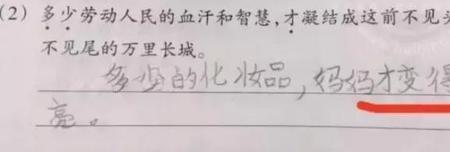 (2) 多少劳动人民的血汗和智慧,才凝结成这前不见
不见尾的万里长城。
多少的化妆品,妈妈才变得
亮。